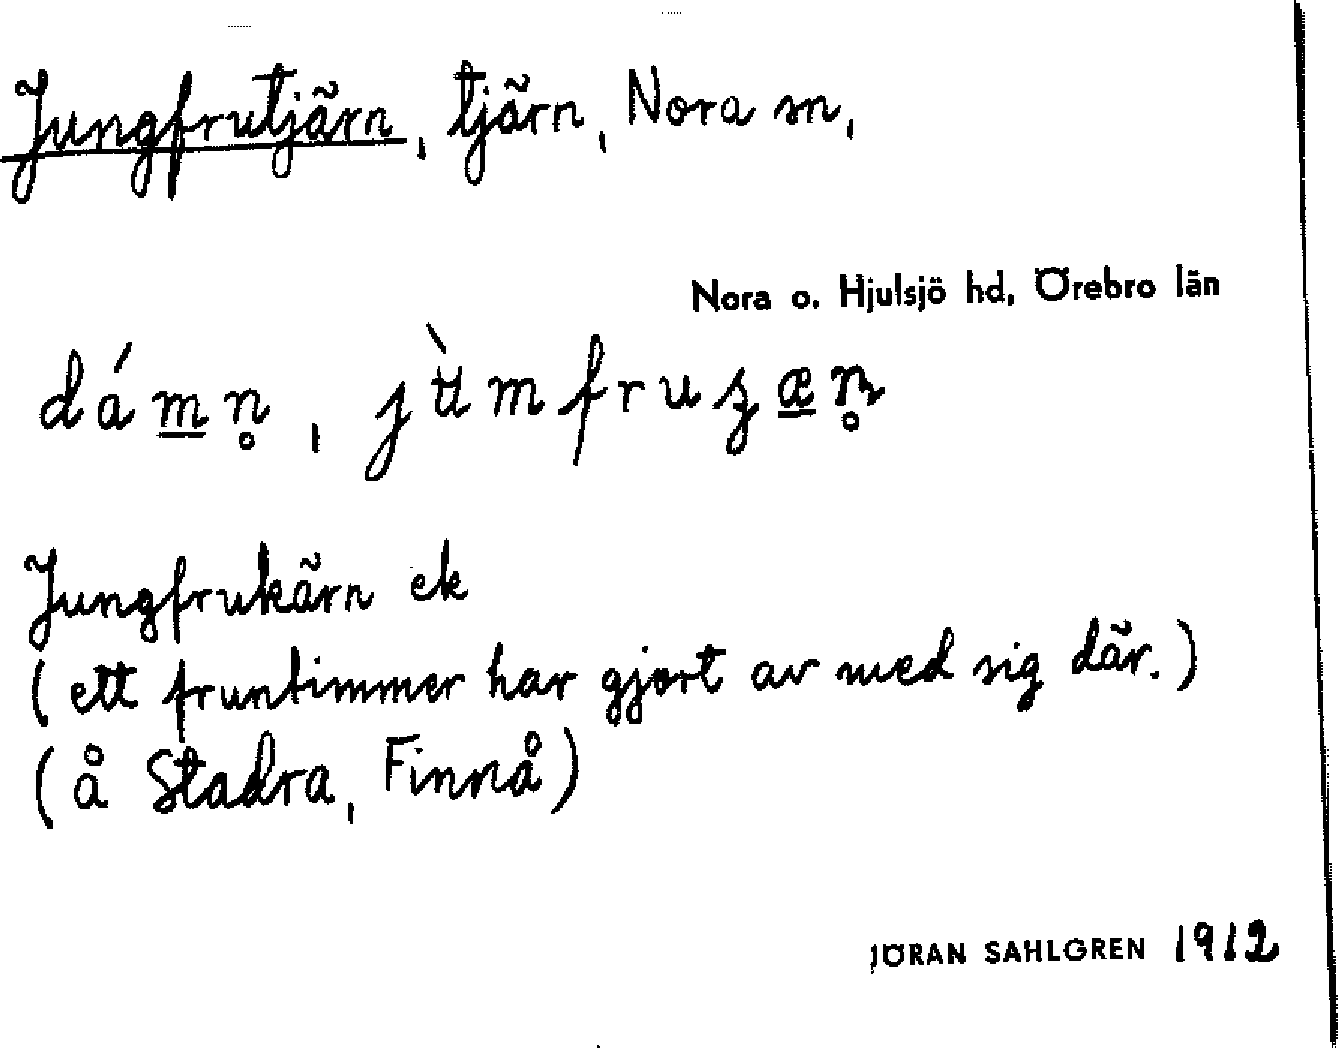 Jungfrutjärn, tjärn, Nora sn,
Nora o. Hjulsjö hd, Örebro län
dámn̥,
Jungfrukärn ek
(ett fruntimmer har gjort av med sig där.)
(å Stadra, Finnå)
JÖRAN SAHLGREN 1912